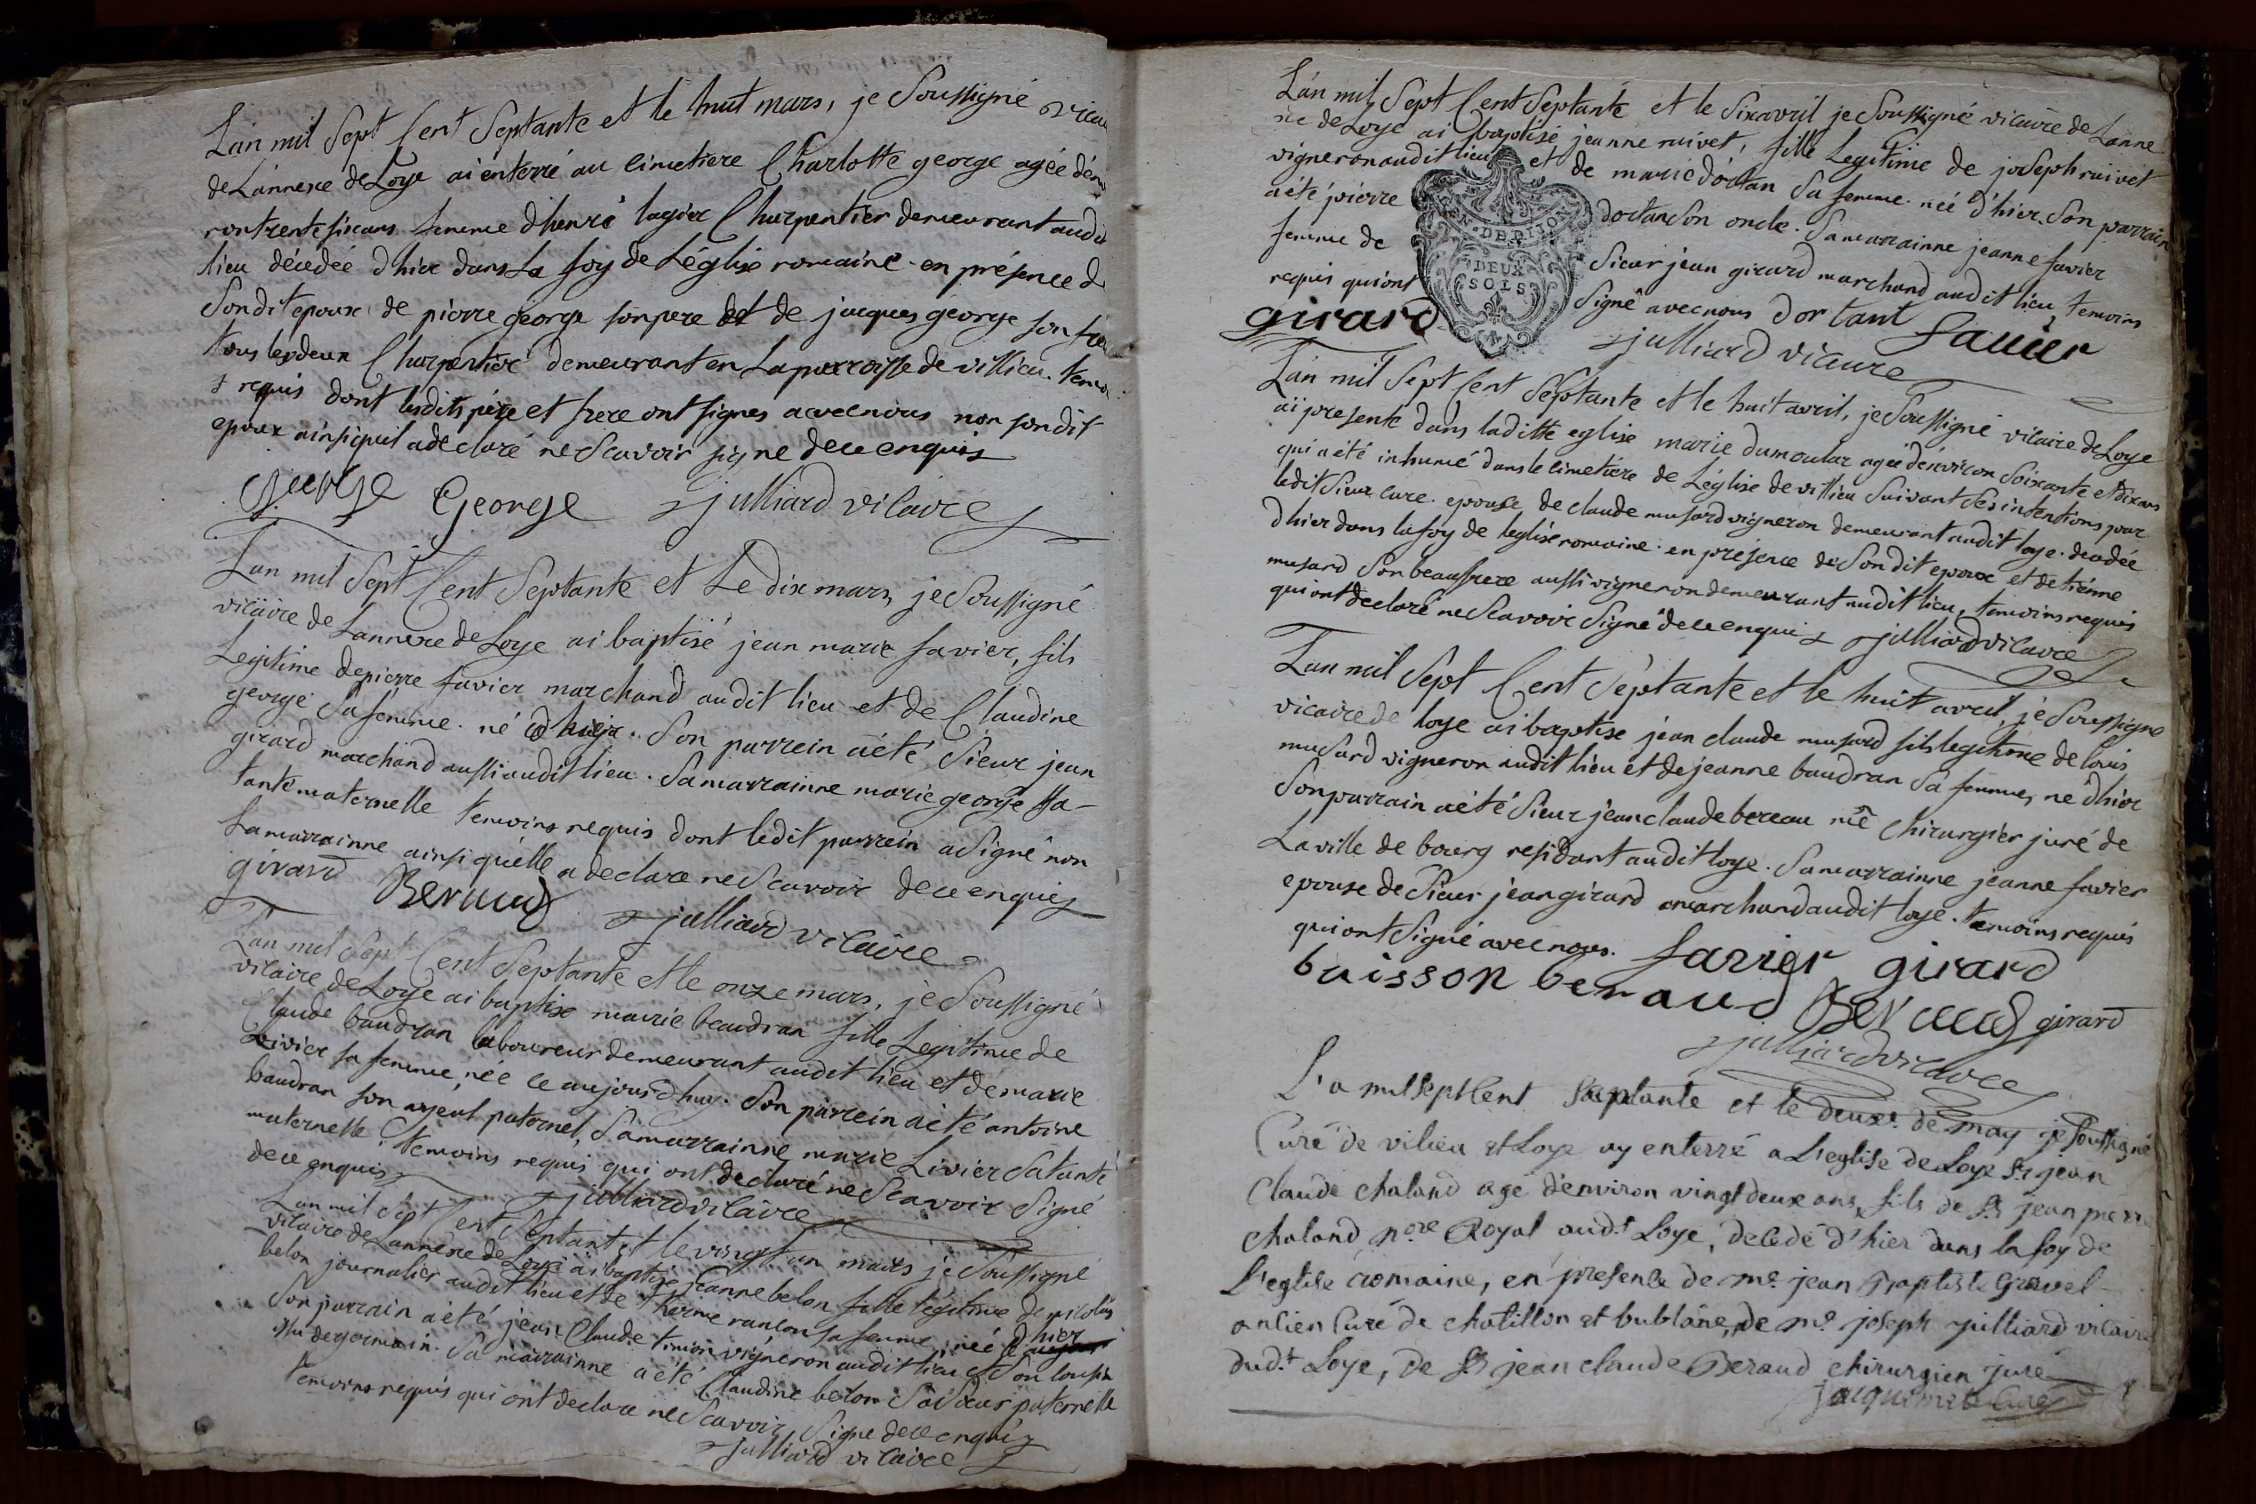 Lán mil Sept Cent Septante et le huit mars, je Soussigné vicai
de Lánnexe de Loye ai enterré au cimetiere Charlotte george agée dénvi
ron trente six ans femme d'henri lagier Charpentier demeurant audit
lieu décedée d'hier dans La foy de Léglise romaine. en présence de
Son dit epoux, de pierre george son pere et de jacques george son frer
tous les deux Charpentier demeurant en La parroisse de villieu. temoi
s requis dont lesdits pére et frere ont signes avec nous non son dit
epoux ainsi quil a declaré ne Scavoir signe de ce enquis
George George julliard vicaire
Lan mil Sept Cent Septante et Le dix mars, je Soussigné
vicaire de Lannexe de Loye ai baptisé jean marie favier, fils
Legitime de pierre favier marchand audit lieu et de Claudine
george Sa femme. né d'hier. Son parrein a été Sieur jean
girard marchand aussi audit lieu. Sa marrainne marie george Sa
tante maternelle temoins requis dont ledit parrein a Signé non
La marrainne ainsi quélle a declare ne Scavoir de ce enquis
girard Beraud julliard vicaire
Lan mil Sept Cent Septante et le onze mars, je Soussigné
vicaire de Loye ai baptise marie baudran fille Legitime de
Claude baudran laboureur demeurant audit lieu et de marie
Livier sa femme, née ce aujourd'huy. Son parrein a été antoine
baudran son ayeul paternel, Sa marrainne marie Livier Sa tante
maternelle. temoins requis qui ont declaré ne Scavoir Signé
de ce enquis julliard vicaire
Lan mil Sept Cent Septant et le vingt un mars je Soussigné
vicaire de Lannexe de Loye ai baptisé jeanne belon fille légitime de nicolas
belon journalier audit lieu et de therine ranson sa femme, née d'hier
Son parrain a été jean Claude timon vigneron audit lieu et Son cousin
issu de germain. Sa marrainne a été Claudine belon Sa Soeur paternelle
temoins requis qui ont declare ne Scavoir Signe de ce enquis
julliard vicaire
Lán mil Sept Cent Septante et le Six avril je Soussigné vicaire de Lanne
xe de Loye ai baptisé jeanne ruivet, fille Legitime de joseph ruivet
vigneron audit lieu et de marie dortan Sa femme. née d'hier. Son parrain
a été pierre dortan Son oncle. Sa marrainne jeanne favier
femme de Sieur jean girard marchand audit lieu, temoins
requis qui ont Signé avec nous dortant favier
GEN. DE DIJON
DEUX
SOLS
girard julliard vicaire
Lán mil Sept Cent Septante et le huit avril, je Soussigné vicaire de Loye
ai presente dans laditte eglise marie dumoular agée dénviron Soixante et dix ans
qui a été inhumé dans le cimetiere de Léglise de villieu Suivant Ses intentions par
ledit Sieur cure. epouse de claude musard vigneron demeurant audit loye. decedée
d'hier dans la foy de leglise romaine. en présence de Son dit epoux et de tiénne
musard Son beaufrere aussi vigneron demeurant audit lieu, temoins requis
qui ont declaré ne Scavoir Signé de ce enquis julliard vicaire
Lan mil Sept Cent Septante et le huit avril, je Soussigne
vicaire de loye ai baptise jean claude musard fils legitime de louis
musard vigneron audit lieu et de jeanne baudran Sa femme, né d'hier
Son parrain a été Sieur jean claude bereau me chirurgier juré de
La ville de bourg residant audit loye. Sa marrainne jeanne favier
epouse de Sieur jean girard marchand audit loye. temoins requis
qui ont Signé avec nous. favier girard
buisson beraud Beraud girard
julliard vicaire
L'a mil sept Cent Septante et le deuxe. de may je soussigné
Curé de vilieu et Loye ay enterré a L'eglise de Loye Sr. jean
Claude chaland age d'environ vingt deux ans, fils de Sr. jean pierre
chaland nore. Royal aud.t Loye, decedé d'hier dans la foy de
L'eglise romaine, en presence de me. jean Baptiste Gravel
ancien Curé de chatillon et bublane, de me. joseph julliard vicaire
dud.t Loye, de Sr. jean claude Beraud chirurgien juré
jacquemet Curé